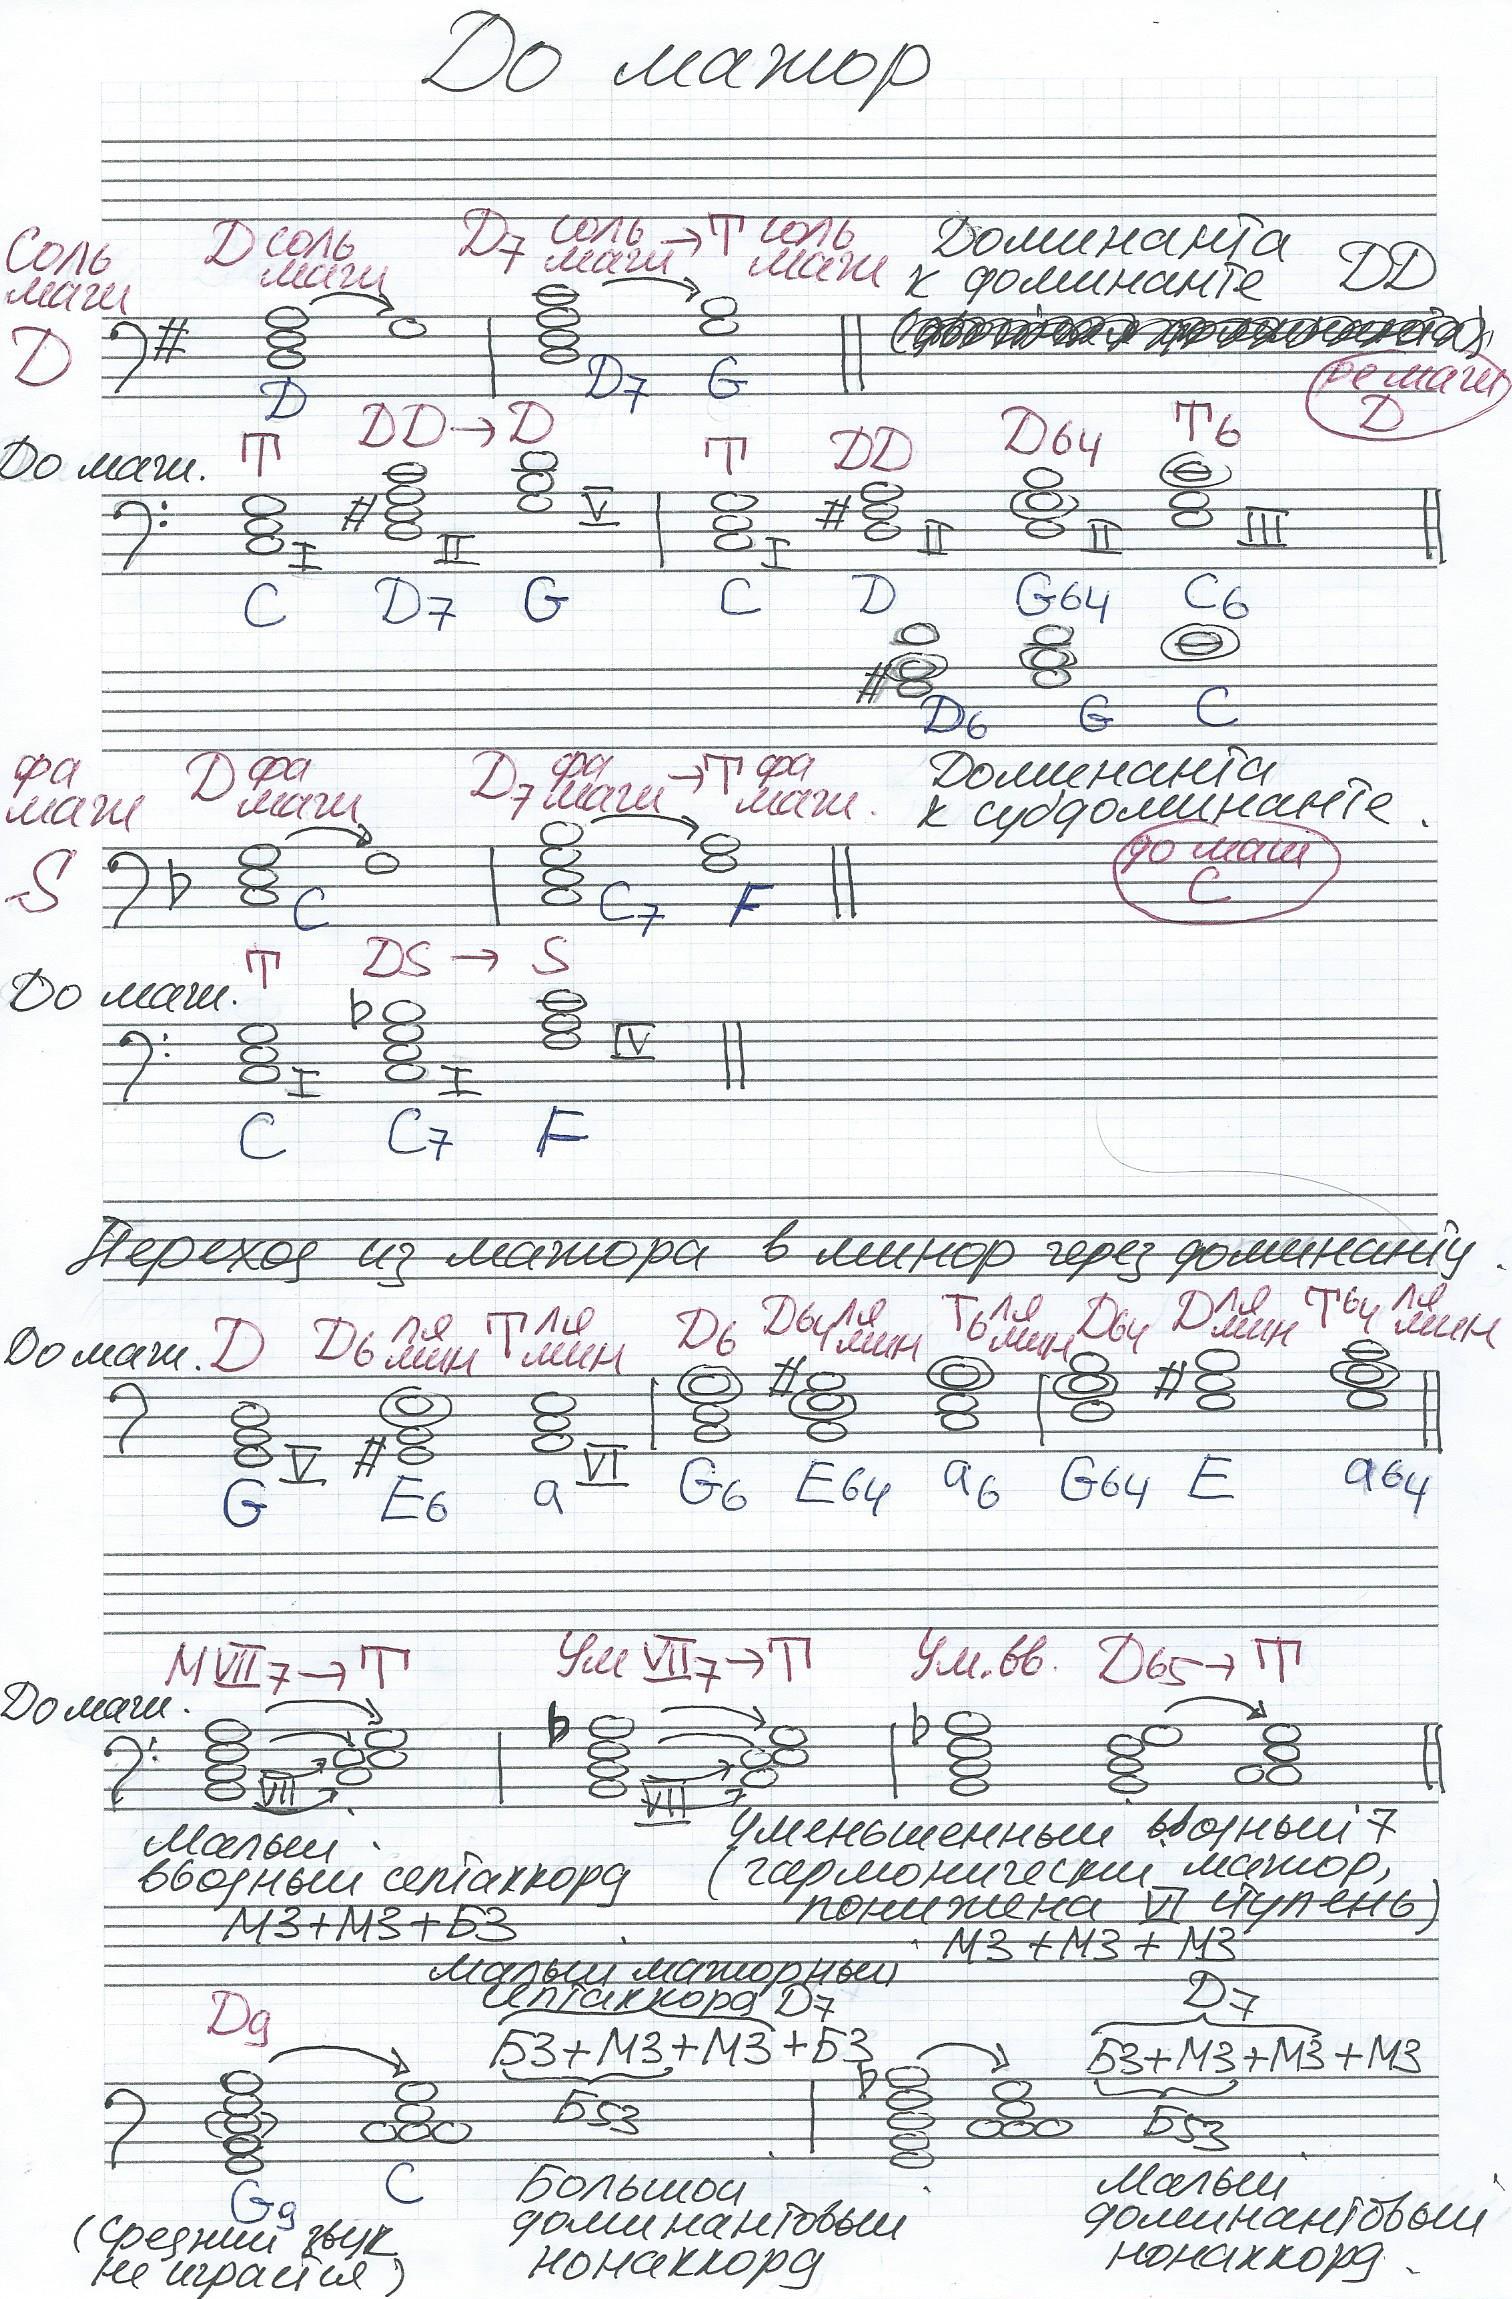 До мажор
Соль маж D D соль маж D7 соль маж → T соль маж Доминанта к доминанте DD
D D7 G ре маж D
До маж. T DD → D T DD D64 T6
I II V I II II III
C D7 G C D G64 C6
D6 G C
фа маж S D фа маж D7 фа маж → T фа маж. Доминанта к субдоминанте.
C C7 F до маж C
До маж. T DS → S
I I IV
C C7 F
Переход из мажора в минор через доминанту.
До маж. D D6 ля мин T ля мин D6 D64 ля мин T6 ля мин D64 D ля мин T64 ля мин
V VI
G E6 a G6 E64 a6 G64 E a64
МVII7 → T Ум VII7 → T Ум. вв. D65 → T
До маж.
VII VII
Малый вводный септаккорд
М3+М3+Б3
Уменьшенный вводный 7
(гармонический мажор,
понижена VI ступень)
М3+М3+М3
Малый мажорный
септаккорд D7
D9 Б3+М3+М3+Б3
Б53
D7
Б3+М3+М3+М3
Б53
G9 C
(Средний звук
не играется)
Большой
доминантовый
нонаккорд
Малый
доминантовый
нонаккорд.